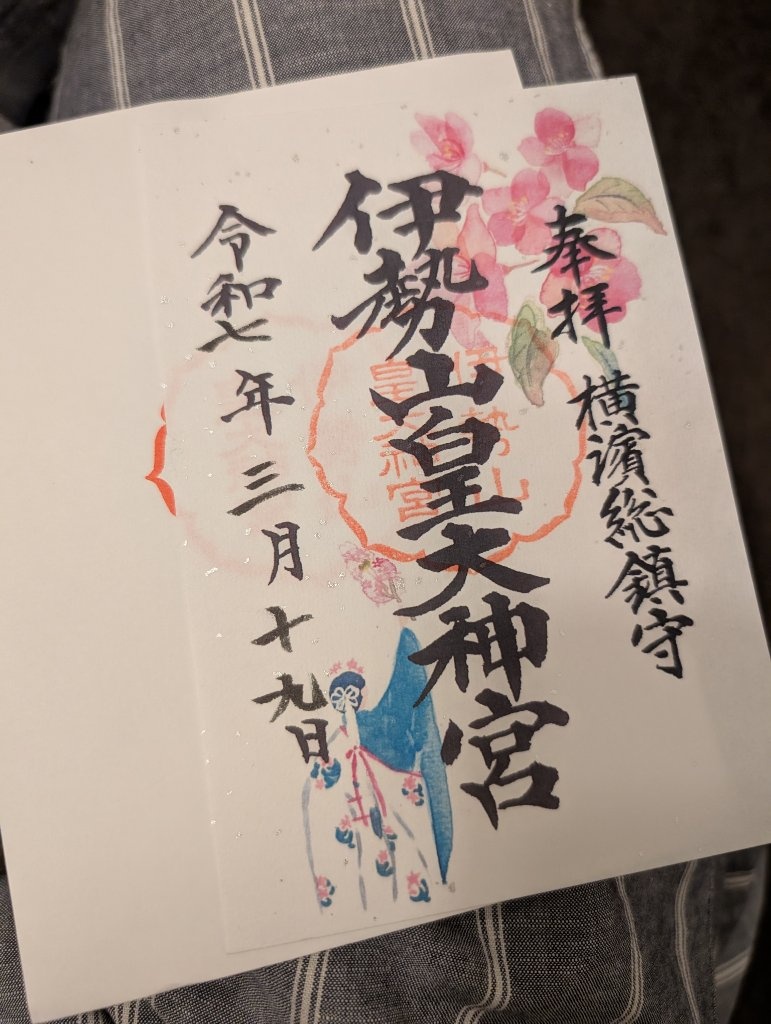 奉拝 横濱総鎮守
伊勢山皇大神宮
伊勢山
皇大神宮
令和七年三月十九日